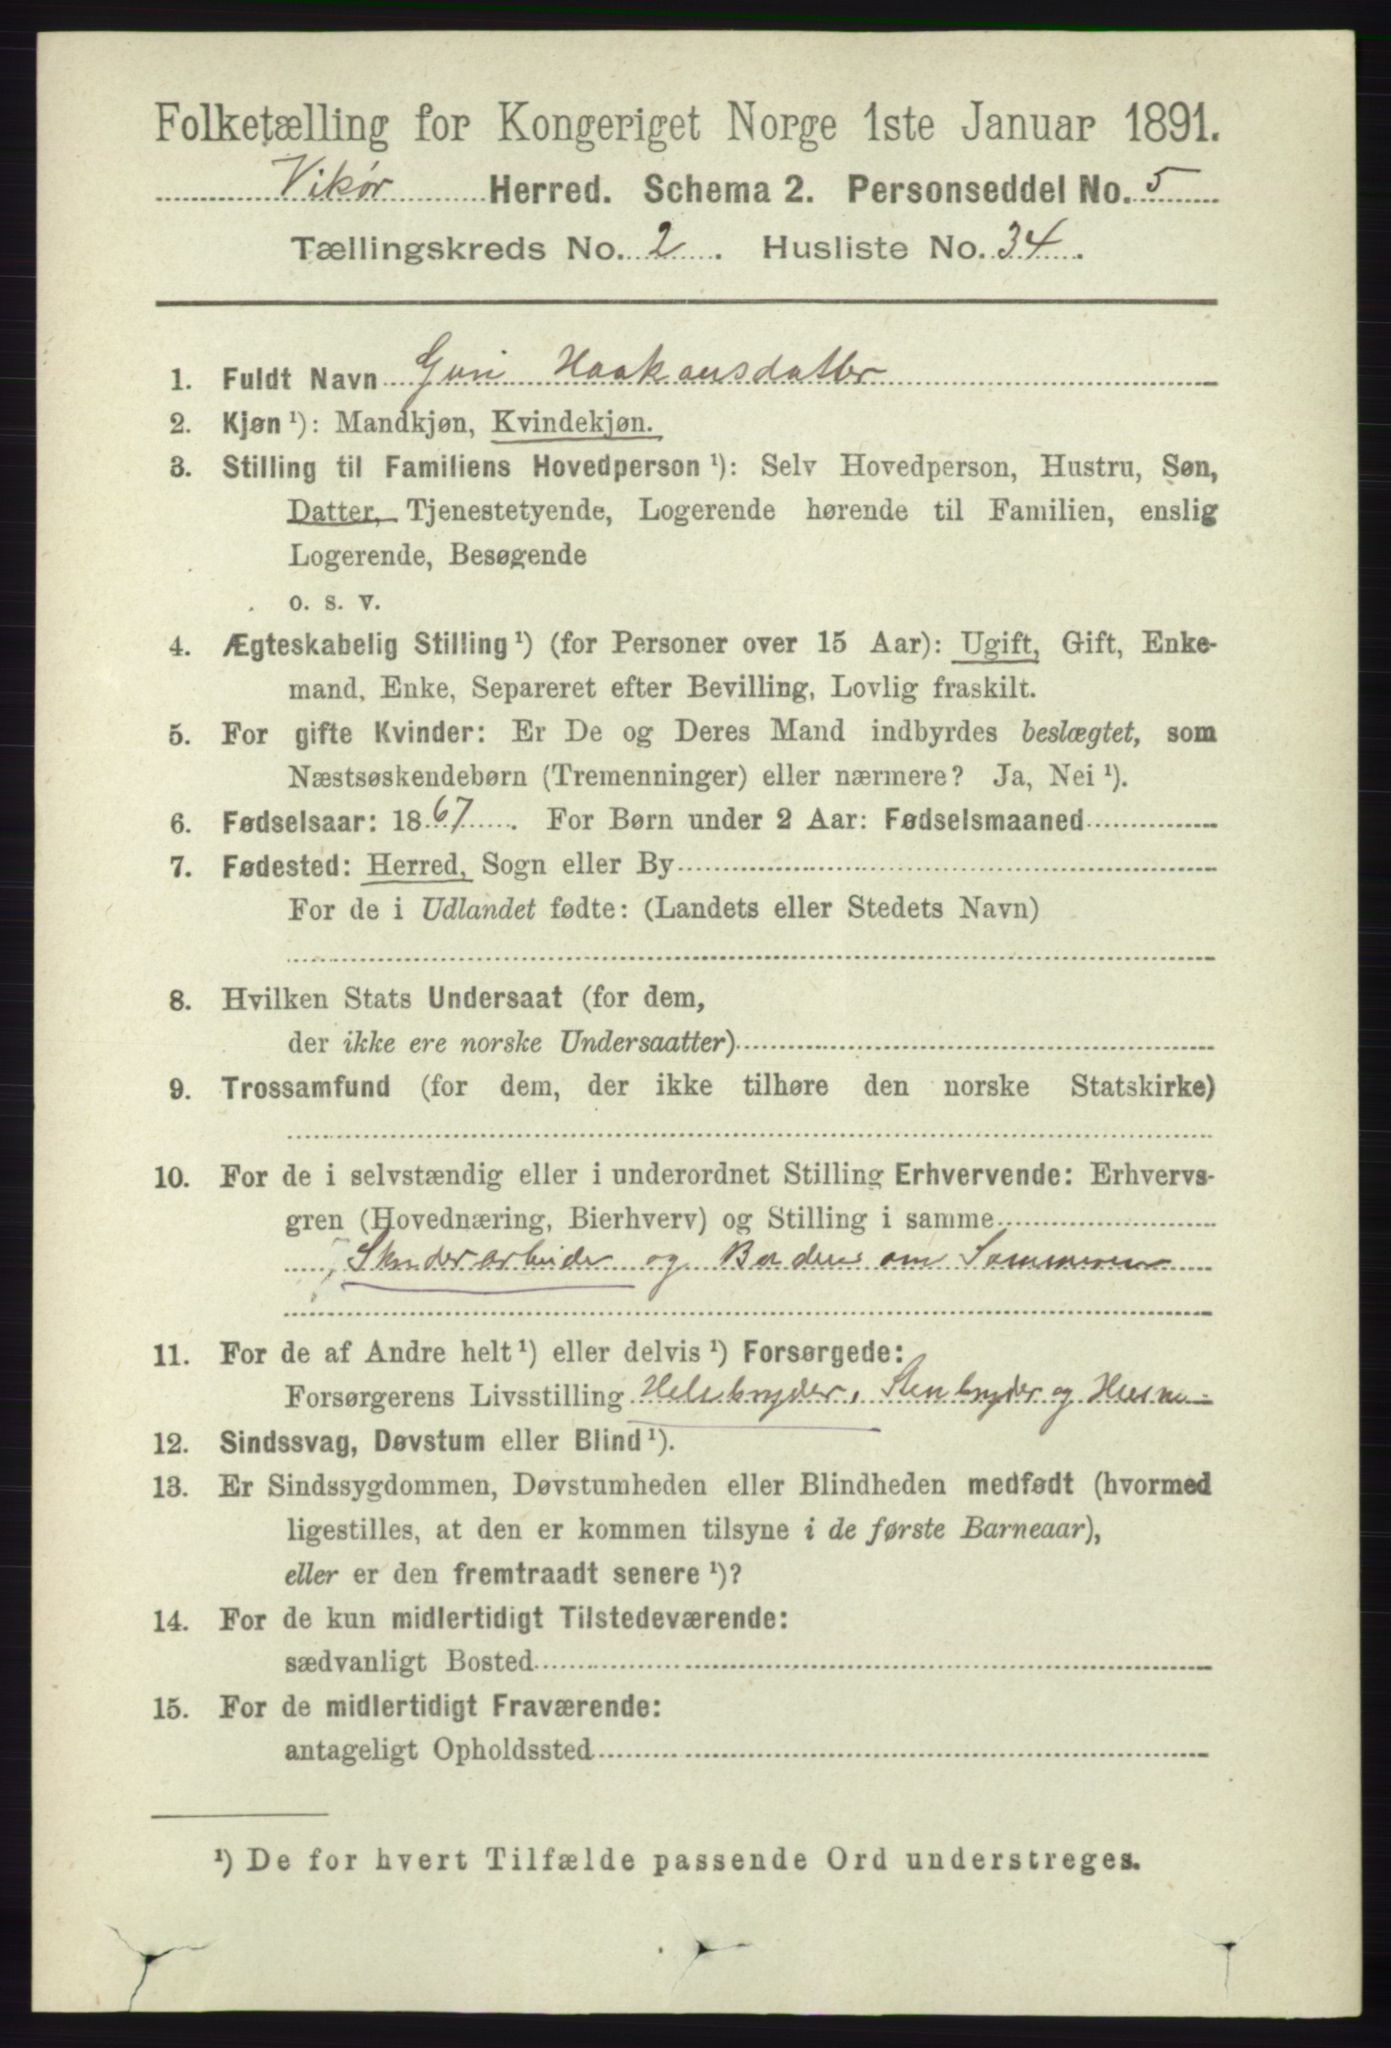 Folketælling for Kongeriget Norge 1ste Januar 1891.
Vikør Herred. Schema 2. Personseddel No. 5
Tællingskreds No. 2. Husliste No. 34.
1. Fuldt Navn Guri Haakonsdatter
2. Kjøn ¹): Mandkjøn, Kvindekjøn.
3. Stilling til Familiens Hovedperson ¹): Selv Hovedperson, Hustru, Søn,
Datter, Tjenestetyende, Logerende hørende til Familien, enslig
Logerende, Besøgende
o. s. v.
4. Ægteskabelig Stilling ¹) (for Personer over 15 Aar): Ugift, Gift, Enke-
mand, Enke, Separeret efter Bevilling, Lovlig fraskilt.
5. For gifte Kvinder: Er De og Deres Mand indbyrdes beslægtet, som
Næstsøskendebørn (Tremenninger) eller nærmere? Ja, Nei ¹).
6. Fødselsaar: 1867. For Børn under 2 Aar: Fødselsmaaned
7. Fødested: Herred, Sogn eller By
For de i Udlandet fødte: (Landets eller Stedets Navn)
8. Hvilken Stats Undersaat (for dem,
der ikke ere norske Undersaatter)
9. Trossamfund (for dem, der ikke tilhøre den norske Statskirke)
10. For de i selvstændig eller i underordnet Stilling Erhvervende: Erhvervs-
gren (Hovednæring, Bierhverv) og Stilling i samme
og om Sommeren
11. For de af Andre helt ¹) eller delvis ¹) Forsørgede:
Forsørgerens Livsstilling Stenbryder og Husm-
12. Sindssvag, Døvstum eller Blind ¹).
13. Er Sindssygdommen, Døvstumheden eller Blindheden medfødt (hvormed
ligestilles, at den er kommen tilsyne i de første Barneaar),
eller er den fremtraadt senere ¹)?
14. For de kun midlertidigt Tilstedeværende:
sædvanligt Bosted
15. For de midlertidigt Fraværende:
antageligt Opholdssted
¹) De for hvert Tilfælde passende Ord understreges.